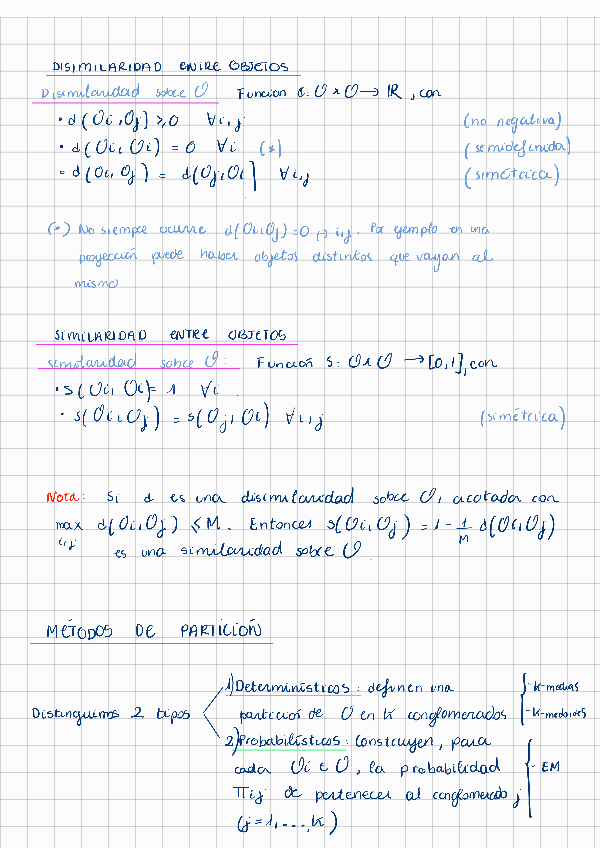 DISIMILARIDAD ENTRE OBJETOS
Disimilaridad sobre O Función d: O x O → IR, con
· d(Oi, Oj) ≥ 0 ∀i,j (no negativa)
· d(Oi, Oi) = 0 ∀i (*) (semidefinida)
· d(Oi, Oj) = d(Oj, Oi) ∀i,j (simétrica)
(*) No siempre ocurre d(Oi, Oj) = 0 i,j. Por ejemplo en una
proyección puede haber objetos distintos que vayan al
mismo
SIMILARIDAD ENTRE OBJETOS
similaridad sobre O: Función S: O x O → [0,1], con
· s(Oi, Oi) = 1 ∀i
· s(Oi, Oj) = s(Oj, Oi) ∀i,j (simétrica)
Nota: Si d es una disimilaridad sobre O, acotada con
max d(Oi, Oj) ≤ M. Entonces s(Oi, Oj) = 1 - 1/M d(Oi, Oj)
i,j es una similaridad sobre O
MÉTODOS DE PARTICIÓN
1) Determinísticos: definen una · k-medias
Distinguimos 2 tipos partición de O en k conglomerados · k-medoides
2) Probabilísticos: construyen, para
cada Oi ∈ O, la probabilidad - EM
πij de pertenecer al conglomerado j
(j = 1, ..., k)